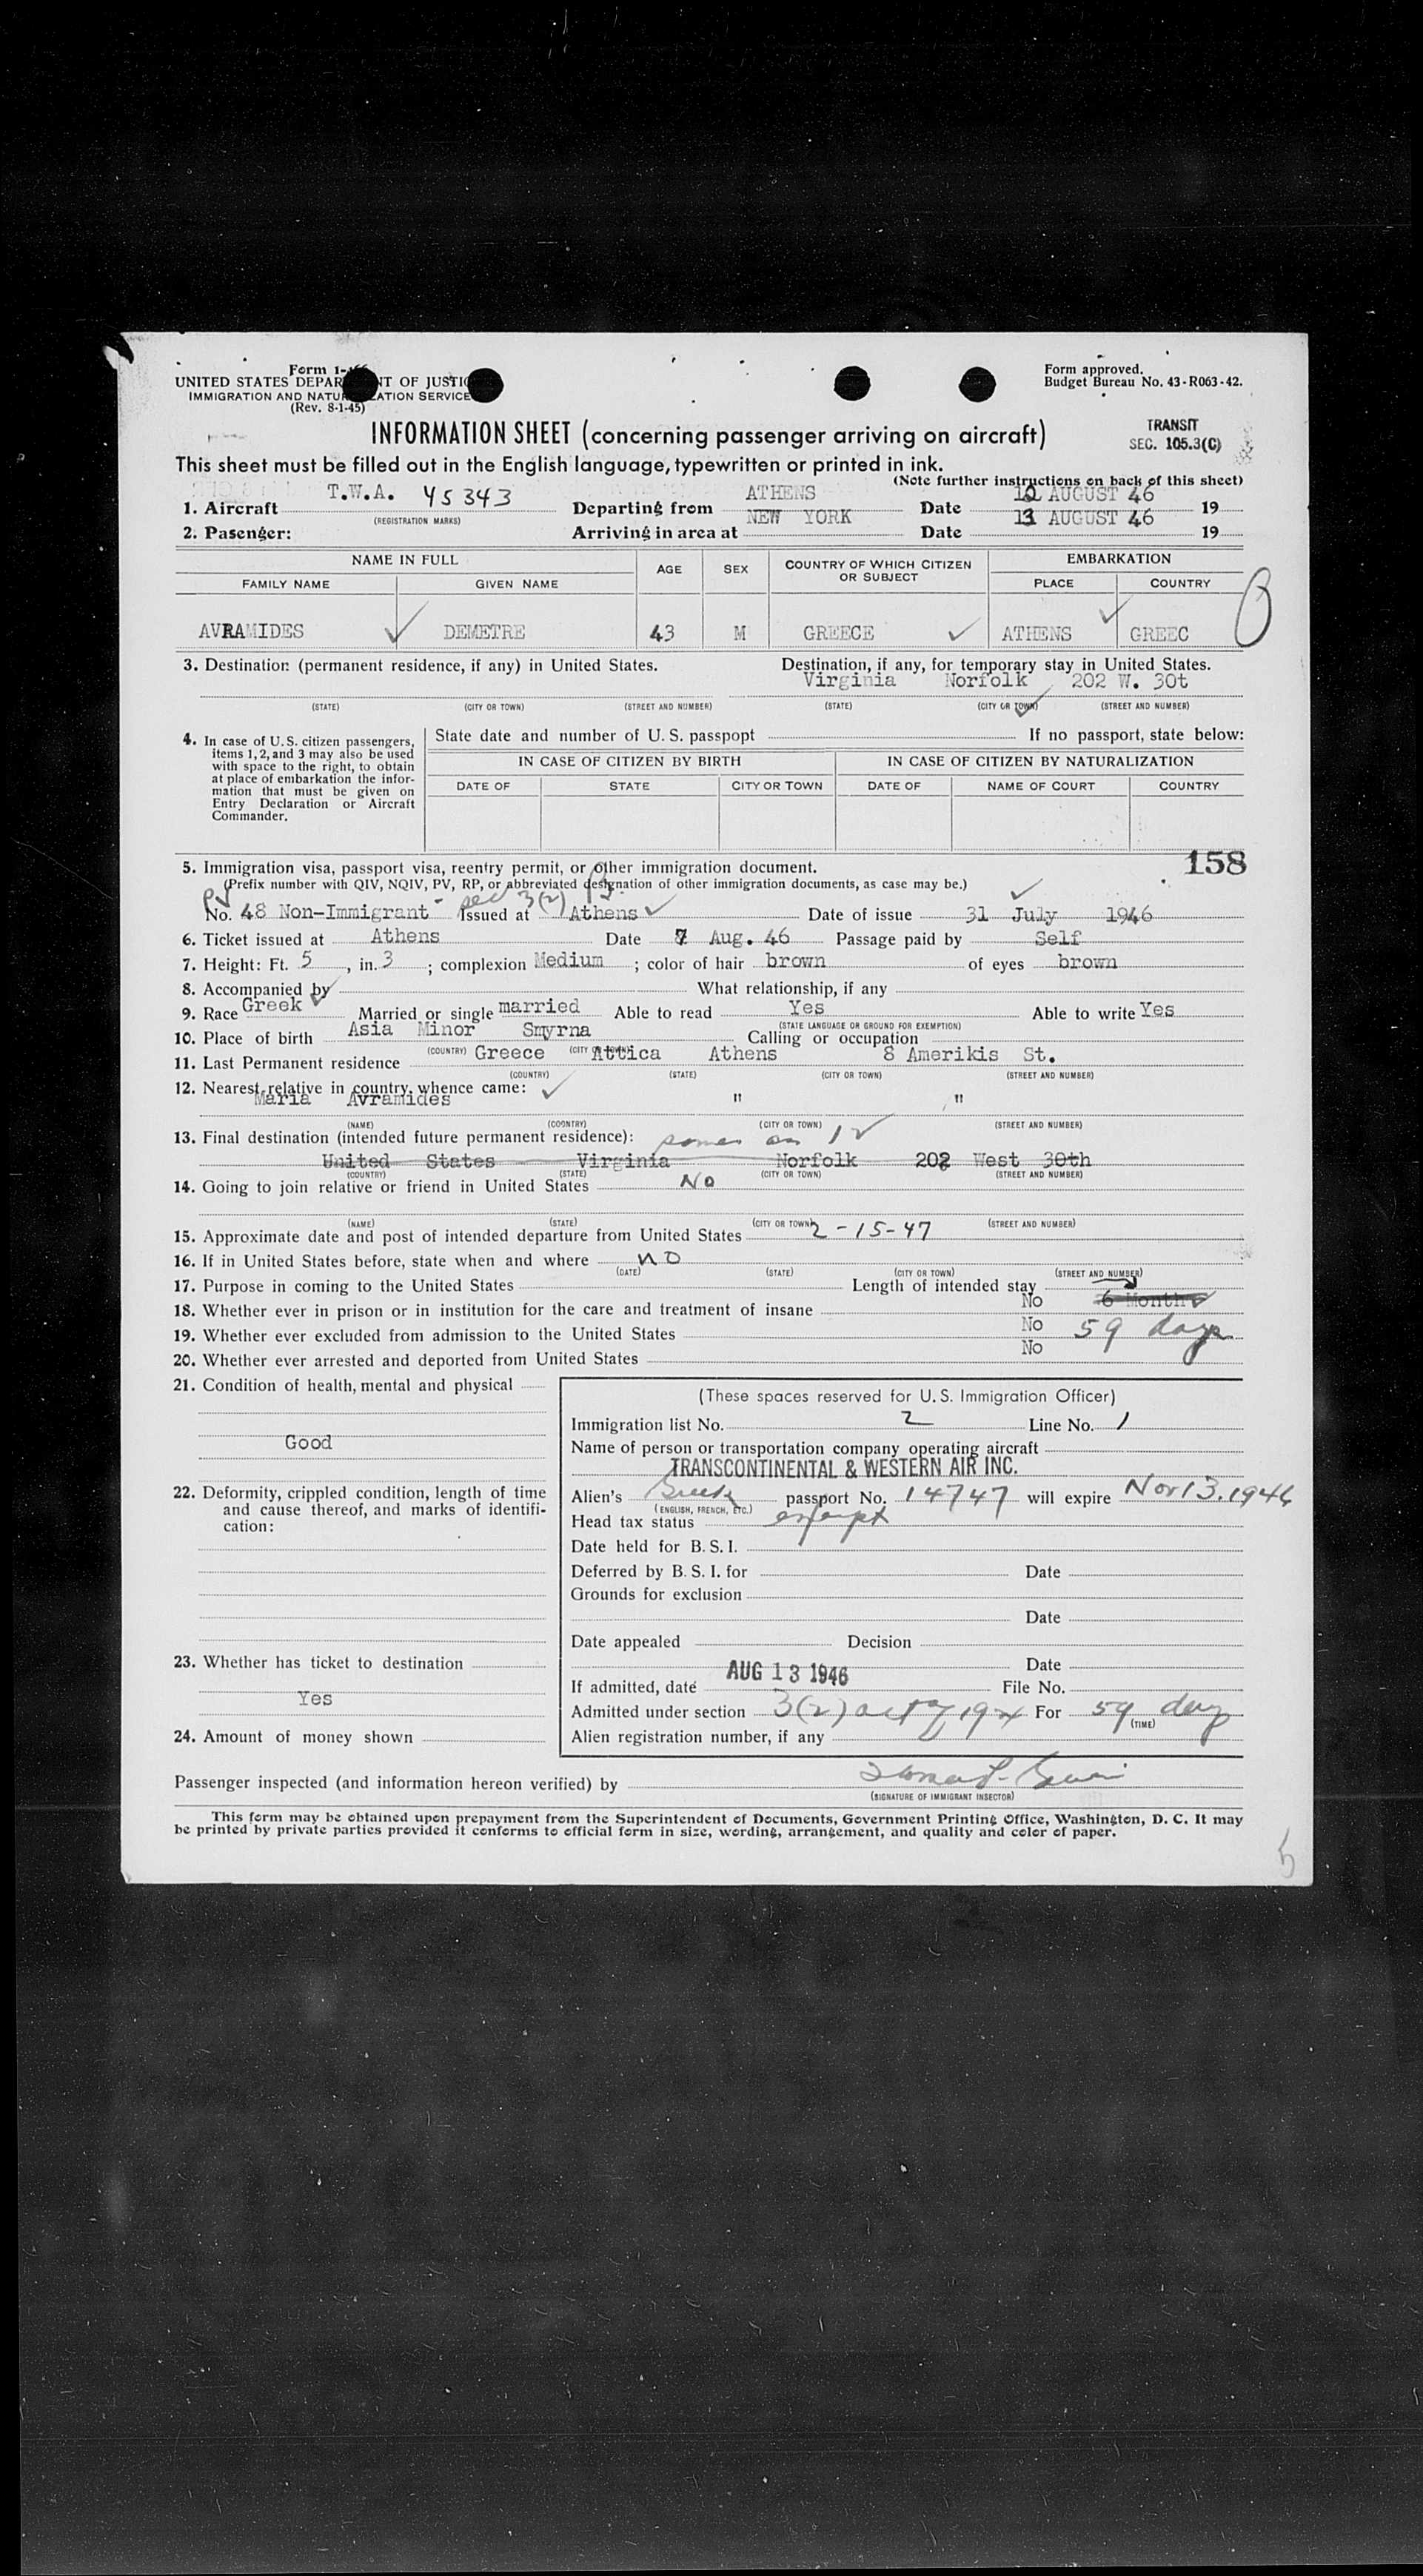 Form 1-
UNITED STATES DEPAR NT OF JUSTIC
IMMIGRATION AND NATUR ATION SERVICE
(Rev. 8-1-45)
Form approved.
Budget Bureau No. 43-R063-42.
INFORMATION SHEET (concerning passenger arriving on aircraft)
TRANSIT
SEC. 105.3(C)
This sheet must be filled out in the English language, typewritten or printed in ink.
(Note further instructions on back of this sheet)
1. Aircraft T.W.A. 45343 Departing from ATHENS Date 12 AUGUST 46 19
(REGISTRATION MARKS)
2. Pasenger: Arriving in area at NEW YORK Date 13 AUGUST 46 19
NAME IN FULL AGE SEX COUNTRY OF WHICH CITIZEN OR SUBJECT EMBARKATION
FAMILY NAME GIVEN NAME PLACE COUNTRY
AVRAMIDES DEMETRE 43 M GREECE ATHENS GREEC
3. Destination (permanent residence, if any) in United States. Destination, if any, for temporary stay in United States.
Virginia Norfolk 202 W. 30t
(STATE) (CITY OR TOWN) (STREET AND NUMBER) (STATE) (CITY OR TOWN) (STREET AND NUMBER)
4. In case of U.S. citizen passengers, items 1, 2, and 3 may also be used with space to the right, to obtain at place of embarkation the information that must be given on Entry Declaration or Aircraft Commander.
State date and number of U.S. passpopt If no passport, state below:
IN CASE OF CITIZEN BY BIRTH IN CASE OF CITIZEN BY NATURALIZATION
DATE OF STATE CITY OR TOWN DATE OF NAME OF COURT COUNTRY
158
5. Immigration visa, passport visa, reentry permit, or other immigration document.
(Prefix number with QIV, NQIV, PV, RP, or abbreviated designation of other immigration documents, as case may be.)
PV sec 3(2)
No. 48 Non-Immigrant Issued at Athens Date of issue 31 July 1946
6. Ticket issued at Athens Date 7 Aug. 46 Passage paid by Self
7. Height: Ft. 5, in. 3; complexion Medium; color of hair brown of eyes brown
8. Accompanied by What relationship, if any
9. Race Greek Married or single married Able to read Yes Able to write Yes
(STATE LANGUAGE OR GROUND FOR EXEMPTION)
10. Place of birth Asia Minor Smyrna Calling or occupation
(COUNTRY) (CITY OR TOWN)
11. Last Permanent residence Greece Attica Athens 8 Amerikis St.
(COUNTRY) (STATE) (CITY OR TOWN) (STREET AND NUMBER)
12. Nearest relative in country whence came:
Maria Avramides " "
(NAME) (COONTRY) (CITY OR TOWN) (STREET AND NUMBER)
13. Final destination (intended future permanent residence): same as 12
United States Virginia Norfolk 202 West 30th
(COUNTRY) (STATE) (CITY OR TOWN) (STREET AND NUMBER)
14. Going to join relative or friend in United States No
(NAME) (STATE) (CITY OR TOWN) (STREET AND NUMBER)
15. Approximate date and post of intended departure from United States 2-15-47
16. If in United States before, state when and where NO
(DATE) (STATE) (CITY OR TOWN) (STREET AND NUMBER)
17. Purpose in coming to the United States Length of intended stay
6 Months
18. Whether ever in prison or in institution for the care and treatment of insane No
19. Whether ever excluded from admission to the United States No 59 days
20. Whether ever arrested and deported from United States No
21. Condition of health, mental and physical
Good
22. Deformity, crippled condition, length of time and cause thereof, and marks of identification:
23. Whether has ticket to destination
Yes
24. Amount of money shown
(These spaces reserved for U.S. Immigration Officer)
Immigration list No. 2 Line No. 1
Name of person or transportation company operating aircraft
TRANSCONTINENTAL & WESTERN AIR INC.
Alien's Greek passport No. 14747 will expire Nov 13, 1946
(ENGLISH, FRENCH, ETC.)
Head tax status exempt
Date held for B.S.I.
Deferred by B.S.I. for Date
Grounds for exclusion
Date
Date appealed Decision
Date
If admitted, date AUG 13 1946 File No.
Admitted under section 3(2) act of 1924 For 59 days
(TIME)
Alien registration number, if any
Passenger inspected (and information hereon verified) by
(SIGNATURE OF IMMIGRANT INSECTOR)
This form may be obtained upon prepayment from the Superintendent of Documents, Government Printing Office, Washington, D. C. It may
be printed by private parties provided it conforms to official form in size, wording, arrangement, and quality and color of paper.
5